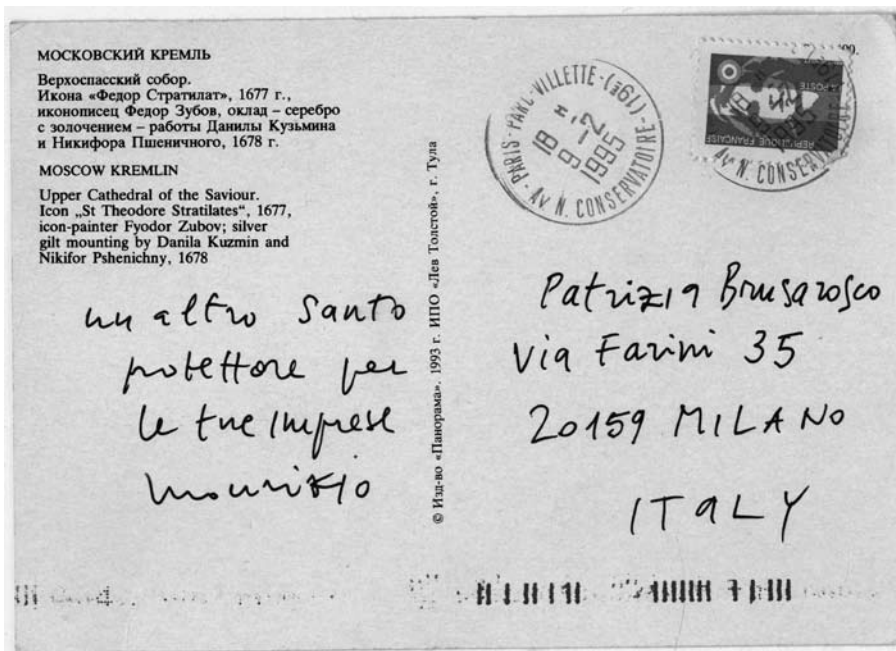 МОСКОВСКИЙ КРЕМЛЬ
Верхоспасский собор.
Икона «Федор Стратилат», 1677 г.,
иконописец Федор Зубов, оклад – серебро
с золочением – работы Данилы Кузьмина
и Никифора Пшеничного, 1678 г.
MOSCOW KREMLIN
Upper Cathedral of the Saviour.
Icon „St Theodore Stratilates“, 1677,
icon-painter Fyodor Zubov; silver
gilt mounting by Danila Kuzmin and
Nikifor Pshenichny, 1678
un altro santo
protettore per
le tue imprese
Maurizio
© Изд-во «Панорама». 1993 г. ИПО «Лев Толстой», г. Тула
PARIS-PARC-VILLETTE-(19E)
18 H
9-2
1995
AV N. CONSERVATOIRE
LA POSTE
REPUBLIQUE FRANCAISE
AV N. CONSERVATOIRE
Patrizia Brusarosco
Via Farini 35
20159 MILANO
ITALY